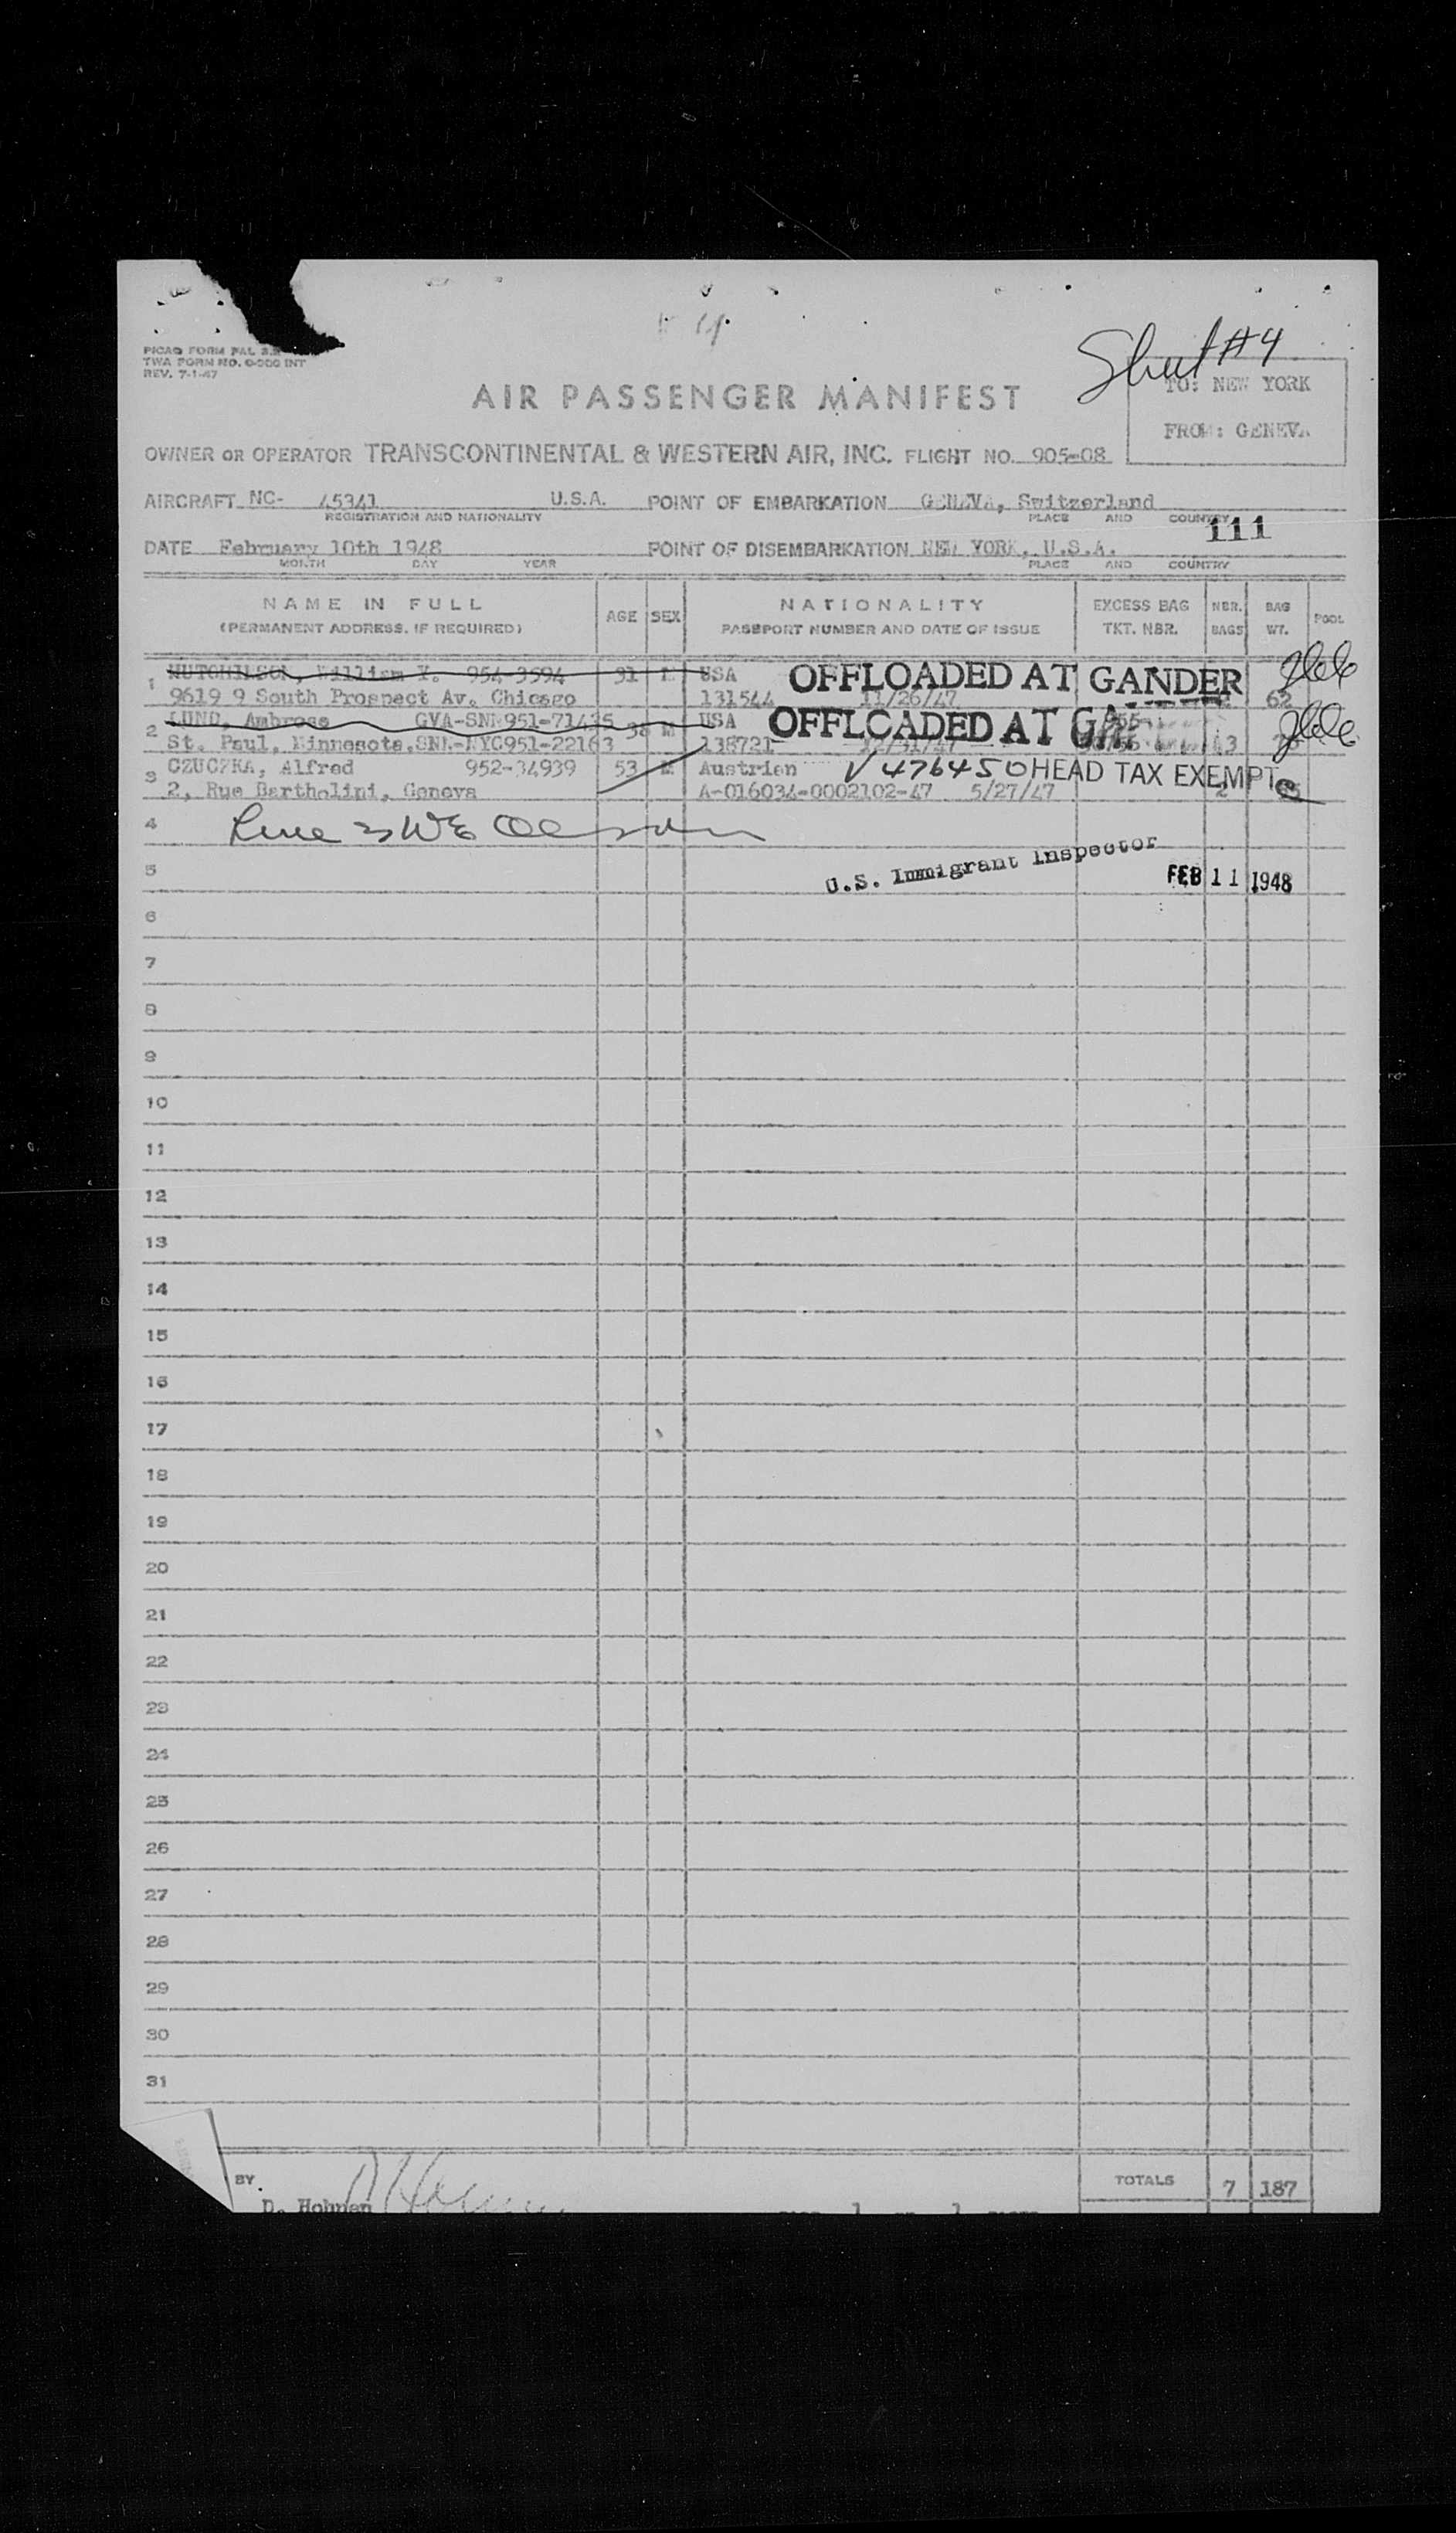 Sheet #4
PICAO FORM PAL
TWA FORM NO. 0-000 INT
REV. 7-1-47
TO: NEW YORK
AIR PASSENGER MANIFEST
FROM: GENEVA
OWNER OR OPERATOR TRANSCONTINENTAL & WESTERN AIR, INC. FLIGHT NO. 905-08
AIRCRAFT NC- 45341 U.S.A. POINT OF EMBARKATION GENEVA, Switzerland
REGISTRATION AND NATIONALITY PLACE AND COUNTRY
111
DATE February 10th 1948 POINT OF DISEMBARKATION NEW YORK, U.S.A.
MONTH DAY YEAR PLACE AND COUNTRY
NAME IN FULL AGE SEX NATIONALITY EXCESS BAG NBR. BAG POOL
(PERMANENT ADDRESS, IF REQUIRED) PASSPORT NUMBER AND DATE OF ISSUE TKT. NBR. BAGS WT.
1 HUTCHINSON, William Y. 954-3594 31 M USA OFFLOADED AT GANDER
9619 9 South Prospect Av. Chicago 131544 11/26/47 62
2 LUND, Ambrose GVA-SNN 951-71435 38 M USA OFFLOADED AT
St. Paul, Minnesota, SNN-NYC951-22163 138721 3
3 CZUCZKA, Alfred 952-34939 53 M Austrian V 476450 HEAD TAX EXEMPT
2, Rue Bartholini, Geneva A-016034-0002102-47 5/27/47 2
4 Line 3 WE
5 U.S. Immigrant Inspector FEB 11 1948
6
7
8
9
10
11
12
13
14
15
16
17
18
19
20
21
22
23
24
25
26
27
28
29
30
31
BY TOTALS 7 187
D. Hohnen